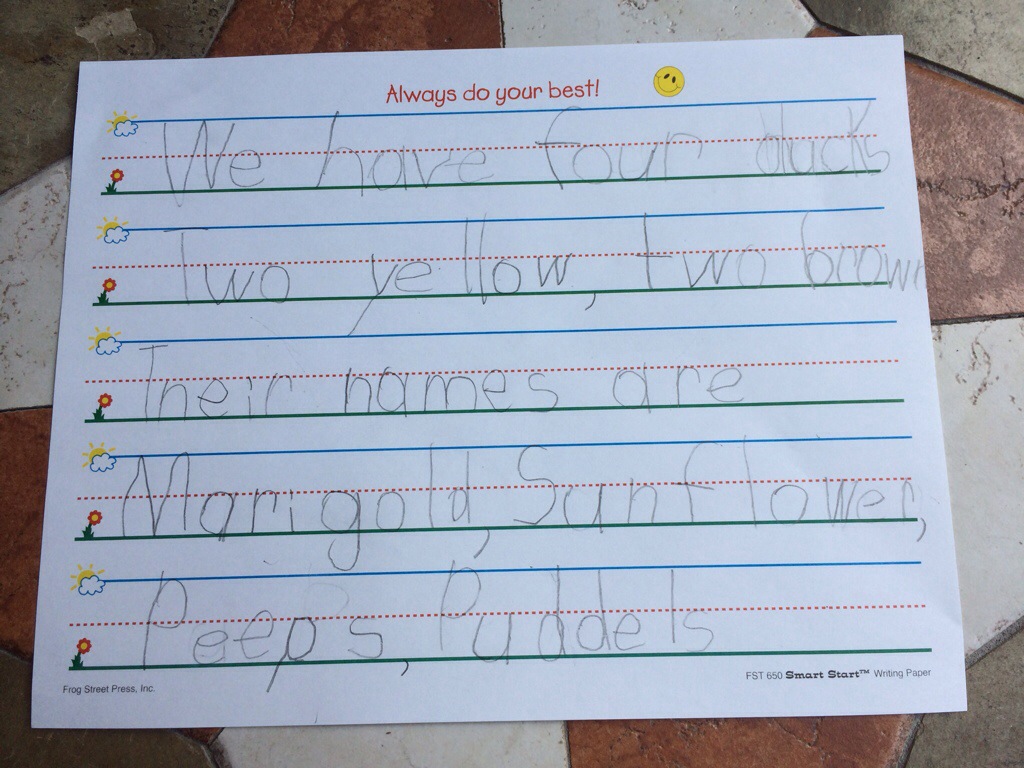 Always do your best!
We have four ducks
Two yellow, two brown
Their names are
Marigold, Sunflower,
Peeps, Puddels
Frog Street Press, Inc.
FST 650 Smart Start™ Writing Paper